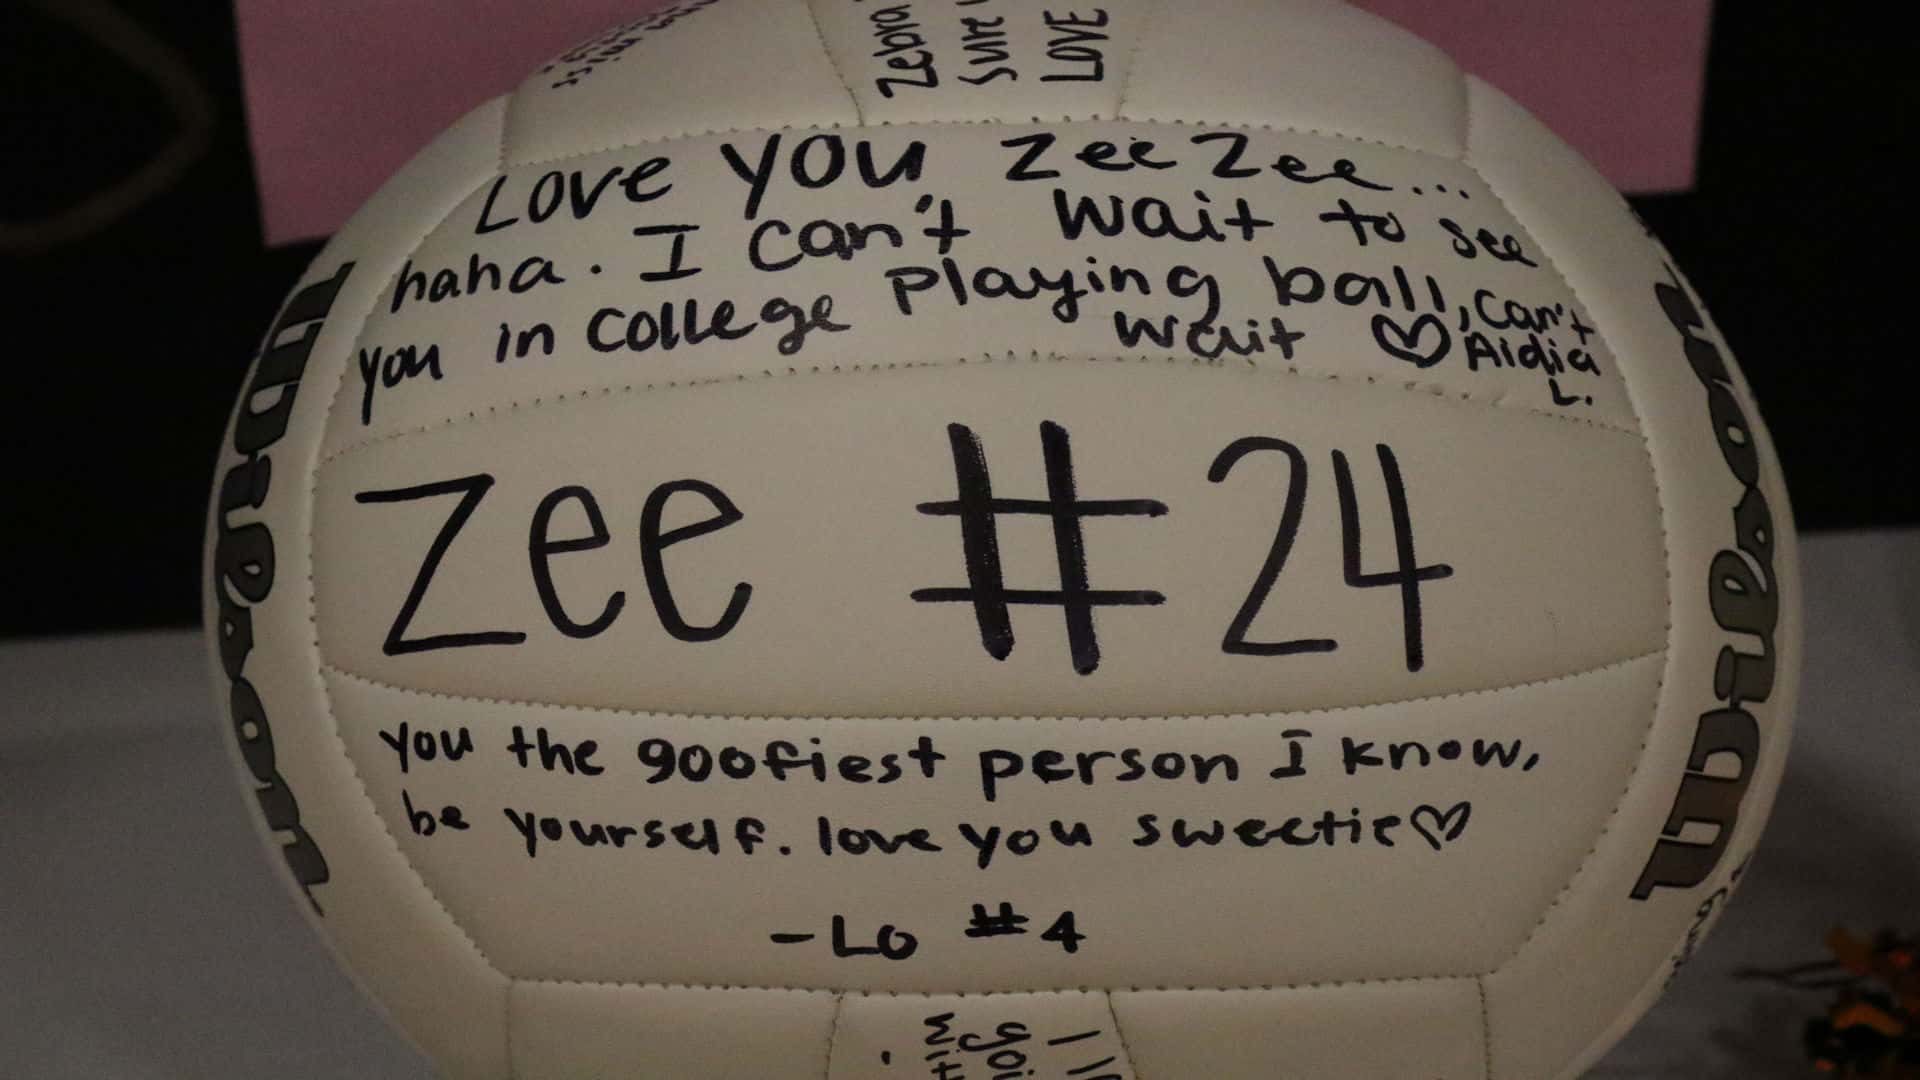 Zebra
sure
LOVE
Love you ZeeZee...
haha. I can't wait to see
you in college playing ball, can't
wait ♡ Aidia
L.
Zee #24
you the goofiest person I know,
be yourself. love you sweetie♡
-Lo #4
Wilson
Wilson